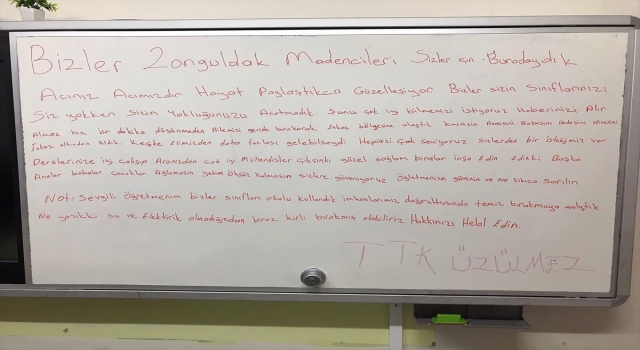 Bizler Zonguldak Madencileri Sizler için Buradaydık
Acınız Acımızdır Hayat Paylaştıkca Güzelleşiyor. Bizler sizin Sınıflarınızı
Siz yokken Sizin Yokluğunuzu Aratmadık. Şunu çok iyi bilmenizi istiyoruz Haberinizi Alır
Almaz hiç bir dakika düşünmeden Ailemizi geride bırakarak bölgesine ulaştık kimimizin Annesini Babasını
altından Aldık. Keşke Elimizden daha fazlası gelebilseydi Hepinizi çok seviyoruz sizlerden bir isteğimiz var
Derslerinize iyi çalışıp Aranızdan çok iyi Mühendisler çıksınki güzel sağlam binalar inşa Edin Edinki Başka
Analar babalar çocuklar Ağlamasın yetim öksüz kalmasın sizlere güveniyoruz Öğretmenize güvenin ve ona sıkıca Sarılın
Not: Sevgili öğretmenim bizler sınıfları okulu kullandık imkanlarımız doğrultusunda temiz bırakmaya çalıştık
Ne yazıkki su ve Elektirik olmadığından biraz kirli bırakmış olabiliriz Hakkınızı Helal Edin.
TTK ÜZÜLMEZ